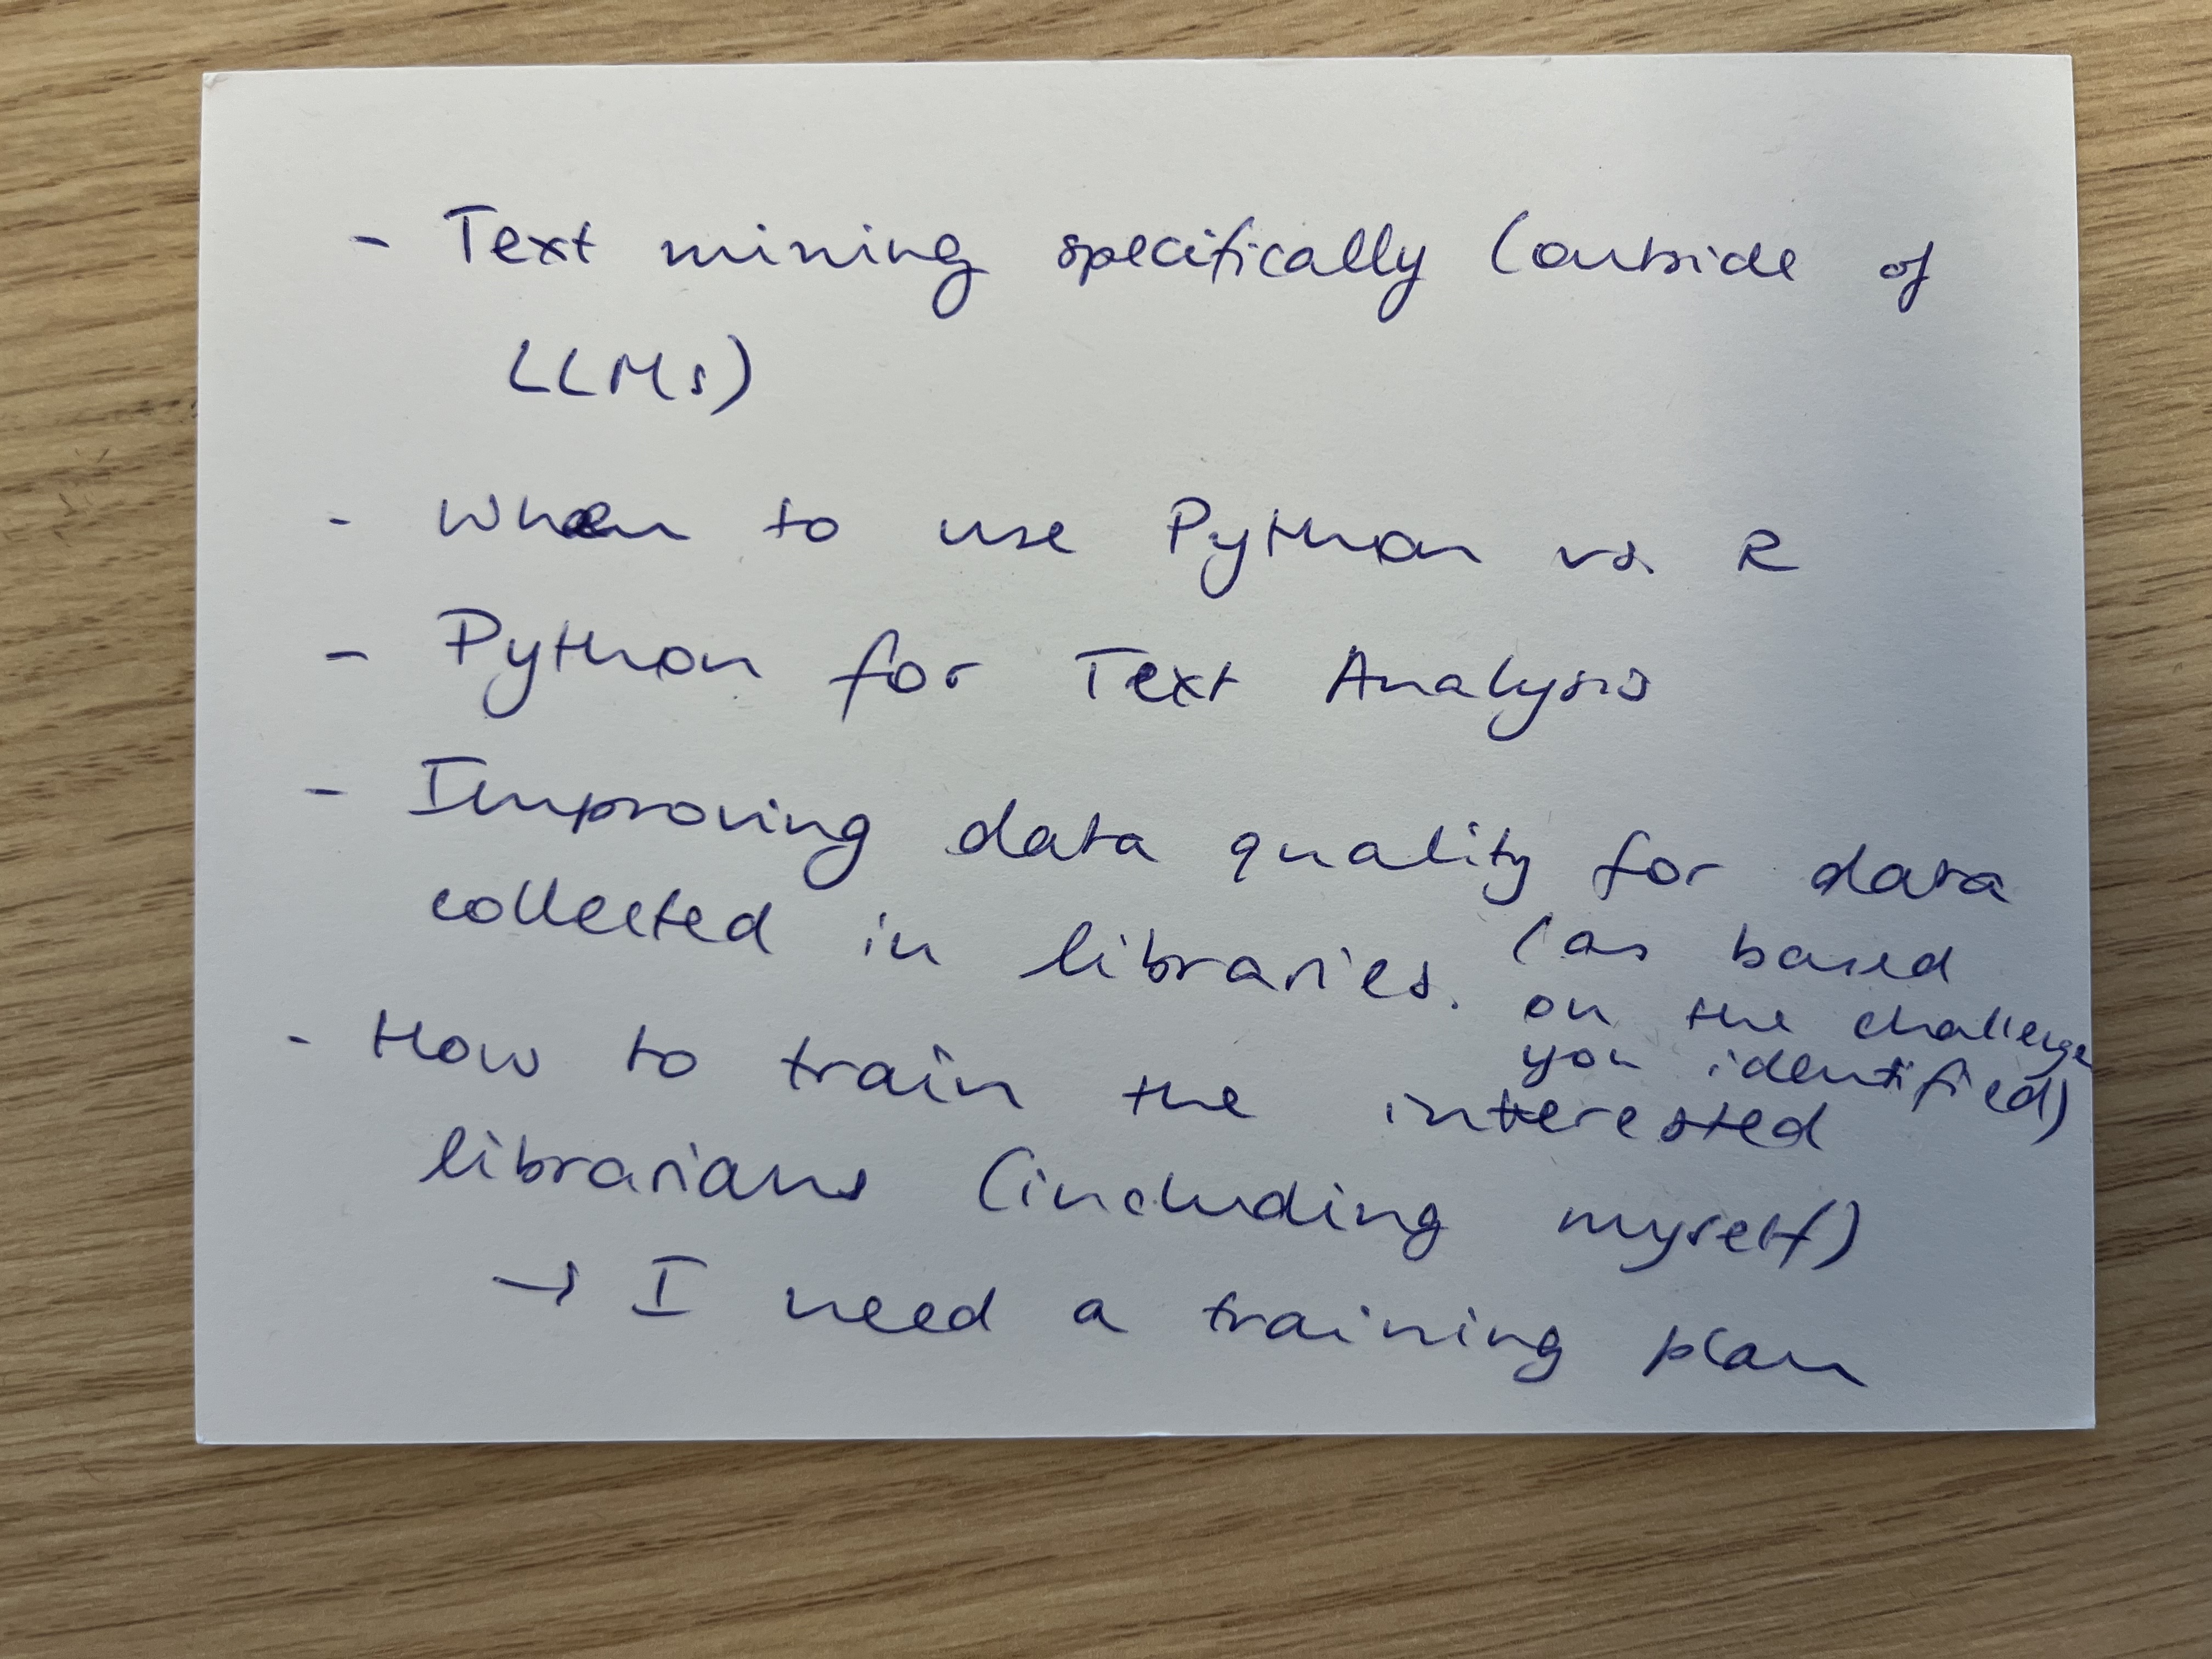 - Text mining specifically (outside of
LLMs)
- When to use Python vs. R
- Python for Text Analysis
- Improving data quality for data
collected in libraries. (as based
on the challenge
you identified)
- How to train the interested
librarians (including myself)
→ I need a training plan